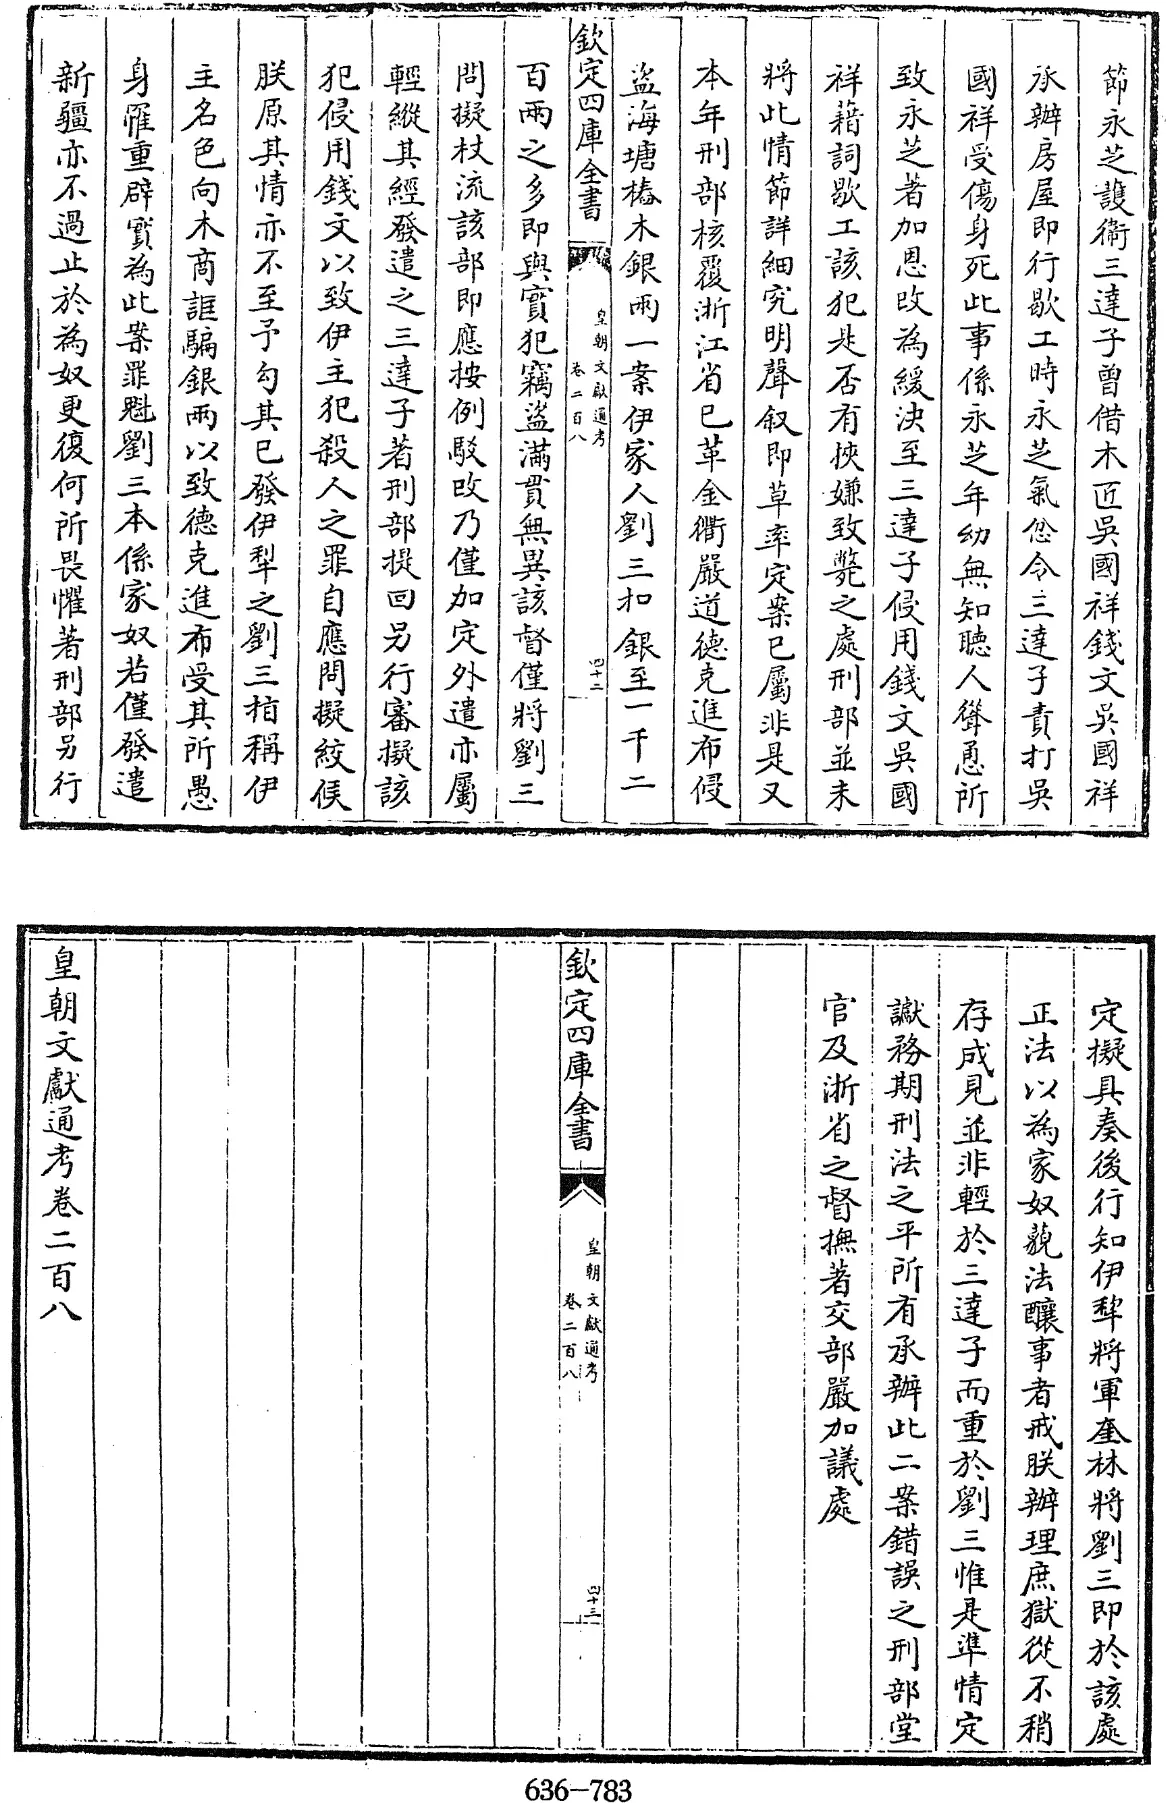 節永芝護衞三達子曾借木匠吳國祥錢文吳國祥
承辦房屋即行歇工時永芝氣忿令三達子責打吳
國祥受傷身死此事係永芝年幼無知聽人聳慂所
致永芝著加恩改為緩決至三達子侵用錢文吳國
祥藉詞歇工該犯是否有挾嫌致斃之處刑部並未
將此情節詳細究明聲叙即草率定案已屬非是又
本年刑部核覆浙江省已革金衢嚴道德克進布侵
盜海塘樁木銀兩一案伊家人劉三扣銀至一千二
欽定四庫全書
皇朝文獻通考
卷二百八
四十二
百兩之多即與實犯竊盜滿貫無異該督僅將劉三
問擬杖流該部即應按例駁改乃僅加定外遣亦屬
輕縱其經發遣之三達子著刑部提回另行審擬該
犯侵用錢文以致伊主犯殺人之罪自應問擬絞候
朕原其情亦不至予勾其已發伊犁之劉三指稱伊
主名色向木商誆騙銀兩以致德克進布受其所愚
身罹重辟實為此案罪魁劉三本係家奴若僅發遣
新疆亦不過止於為奴更復何所畏懼著刑部另行
定擬具奏後行知伊犁將軍奎林將劉三即於該處
正法以為家奴藐法釀事者戒朕辦理庶獄從不稍
存成見並非輕於三達子而重於劉三惟是準情定
讞務期刑法之平所有承辦此二案錯誤之刑部堂
官及浙省之督撫著交部嚴加議處
欽定四庫全書
皇朝文獻通考
卷二百八
四十三
皇朝文獻通考卷二百八
636-783